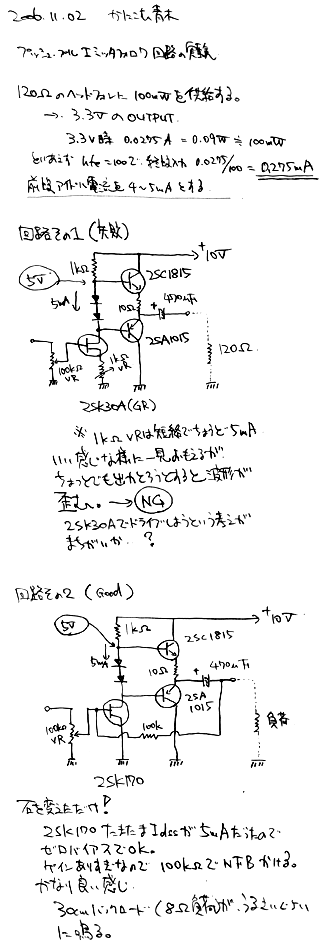 2006.11.02 かにこむ青木
プッシュプルエミッタフォロワ回路の実験
120Ωのヘッドフォンに100mWを供給する。
→ 3.3VのOUTPUT.
3.3V時 0.0275A = 0.09W ≒ 100mW
とりあえず hfe=100で、終段入力 0.0275/100 = 0.275mA
前段アイドル電流を4~5mAとする
回路その1 (失敗)
+10V
5V
1kΩ
2SC1815
5mA
10Ω
470μF
2SA1015
100kΩ VR
1kΩ VR
120Ω
2SK30A(GR)
※ 1kΩ VRは短絡でちょうど5mA
いい感じな様に一見おもえるが
ちょっとでも出力とろうとすると波形が
歪む。→ NG
2SK30Aでドライブしようという考えが
まちがいか?
回路その2 (Good)
+10V
5V
1kΩ
2SC1815
5mA
10Ω
470μF
2SA
1015
100kΩ
VR
100k
負荷
2SK170
石を変えただけ!
2SK170 たまたまIdssが5mAだったので
ゼロバイアスでOK。
ゲインありすぎなので 100kΩでNFBかける。
かなり良い感じ
30cmバックロード (8Ω負荷)が、うるさいぐらい
に鳴る。